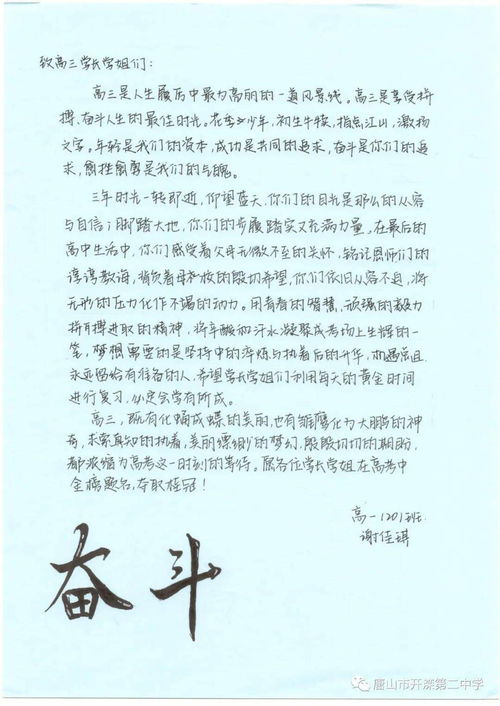 致高三学长学姐们：
高三是人生履历中最为高丽的一道风景线。高三是享受拼
搏、奋斗人生的最佳时光。花季少年，初生牛犊，指点江山，激扬
文字。年轻是我们的资本，成功是共同的追求，奋斗是你们的追
求，愈挫愈勇是我们的气魄。
三年时光一转即逝，仰望蓝天，你们的目光是那么的从容
与自信；脚踏大地，你们的步履踏实又充满力量，在最后的
高中生活中，你们感受着父母无微不至的关怀，铭记恩师们的
谆谆教诲，背负着母校的殷切希望，你们依旧从容不迫，将
无形的压力化作不竭的动力。用青春的智慧，顽强的毅力
拼搏进取的精神，将辛酸和汗水凝聚成考场上生辉的一
笔，梦想需要的是坚持中的淬炼与执着后的升华，机遇总且
永远留给有准备的人，希望学长学姐们利用每天的黄金时间
进行复习，必定会学有所成。
高三，既有化蛹成蝶的美丽，也有雏鹰化为大鹏的神
奇，求索真知的执着，美丽缥缈的梦幻，殷殷切切的期盼，
都浓缩为高考这一时刻的等待。愿各位学长学姐在高考中
金榜题名，夺取桂冠！
高一1201班
谢佳琪
奋斗
唐山市开滦第二中学